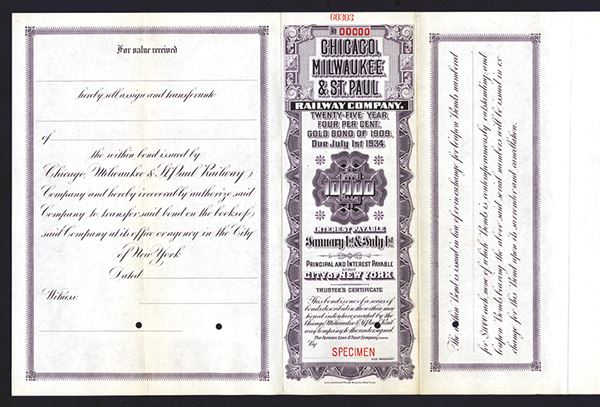 For value received
hereby sell assign and transfer unto
of
the within bond issued by
Chicago, Milwaukee & St. Paul Railway
Company and hereby irrevocably authorize said
Company to transfer said bond on the books of
said Company at its office or agency in the City
of New York
Dated
Witness
60303
00000
CHICAGO,
MILWAUKEE
& ST. PAUL
RAILWAY COMPANY.
TWENTY-FIVE YEAR
FOUR PER CENT.
GOLD BOND OF 1909.
Due July 1st 1934.
10000
INTEREST PAYABLE
January 1st & July 1st
PRINCIPAL AND INTEREST PAYABLE
CITY OF NEW YORK
TRUSTEE'S CERTIFICATE
This bond is one of a series of
bonds described in the within mortgage
The Farmers' Loan & Trust Company
By
SPECIMEN
The within Bond is issued in lieu of or in exchange for Coupon Bonds numbered
for $1000 each, none of which Bonds is contemporaneously outstanding, and
Coupon Bonds bearing the above said serial numbers will be issued in ex-
change for this Bond upon its surrender and cancellation.